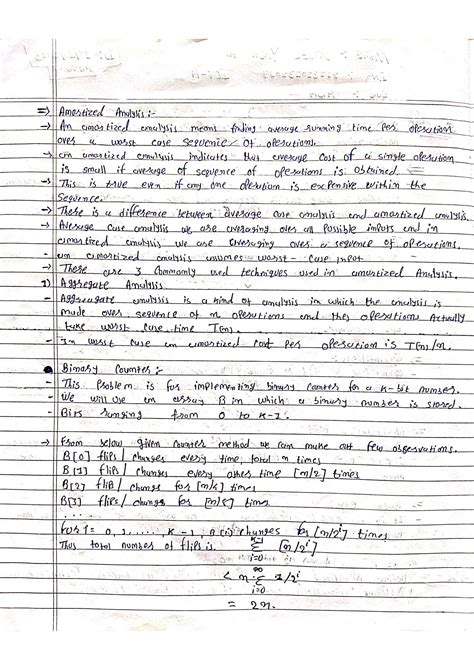 => Amortized Analysis :-
-> An amortized analysis means finding average running time per operation
over a worst case sequence of operations.
-> an amortized analysis indicates that average cost of a single operation
is small if average of sequence of operations is obtained.
-> This is true even if any one operation is expensive within the
sequence.
-> There is a difference between average case analysis and amortized analysis.
-> Average case analysis we are averaging over all possible inputs and in
amortized analysis we are averaging over a sequence of operations.
- an amortized analysis assumes worst - case input
-> There are 3 commonly used techniques used in amortized Analysis.
1) Aggregate Analysis
- Aggregate analysis is a kind of analysis in which the analysis is
made over sequence of n operations and this operations Actually
take worst case time T(n).
- In worst case an amortized cost per operation is T(n)/n.
● Binary Counter :-
- This problem is for implementing binary counter for a k-bit number.
- We will use an array B in which a binary number is stored.
- Bits ranging from 0 to k-1.
-> From below given counter method we can make out few observations.
B[0] flips / changes every time, total n times
B[1] flips / changes every other time [n/2] times
B[2] flip / changes for [n/4] times
B[3] flips / changes for [n/8] times
......
for i = 0, 1, ...., k-1, B(i) changes for [n/2^i] times
Thus total number of flips is. k-1 Σ i=0 [n/2^i]
< n ∞ Σ i=0 1/2^i
= 2n.